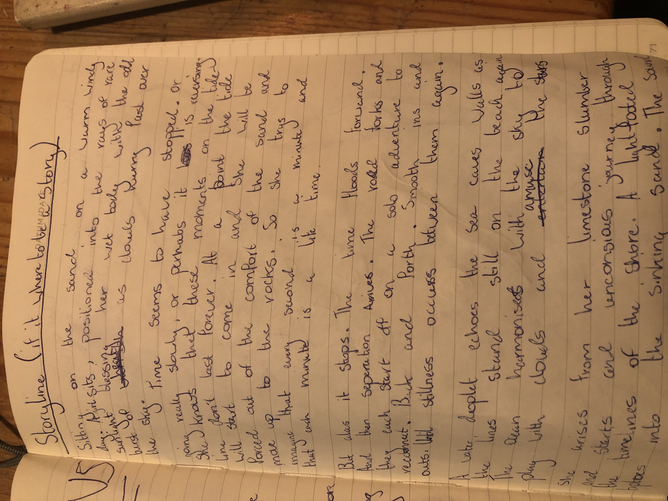 V5
Storyline (if it where to be a story)
Sitting on the sand on a warm windy
day. April sits, positioned into the rays of rare
sunlight blessing her wet body with the odd
burst of as clouds hurry past over
the sky. Time seems to have stopped. Or
going really slowly, or perhaps it is
She knows that these moments on the tide
line don't last forever. At a point the tide
will start to come in and she will be
Forced out of the comfort of the sand and
move up to the rocks. So she trys to
imagine that every second is a minute and
that each minute is a life time.
But alas it stops. The time floods forward.
And then separation Arrives. The road forks and
they each start off on a solo adventure to
reconnect. Back and Forth. Smooth ins and
outs. stillness occurs between them again.
A water droplet echoes the sea caves walls as
the lines stand still on the beach again
The Ocean harmonises with the sky to
play with clouds and amuse the
She arises from her limestone slumber
And starts and unconsious journey through
the timelines of the shore. A light footed
into the sinking sand. The
71